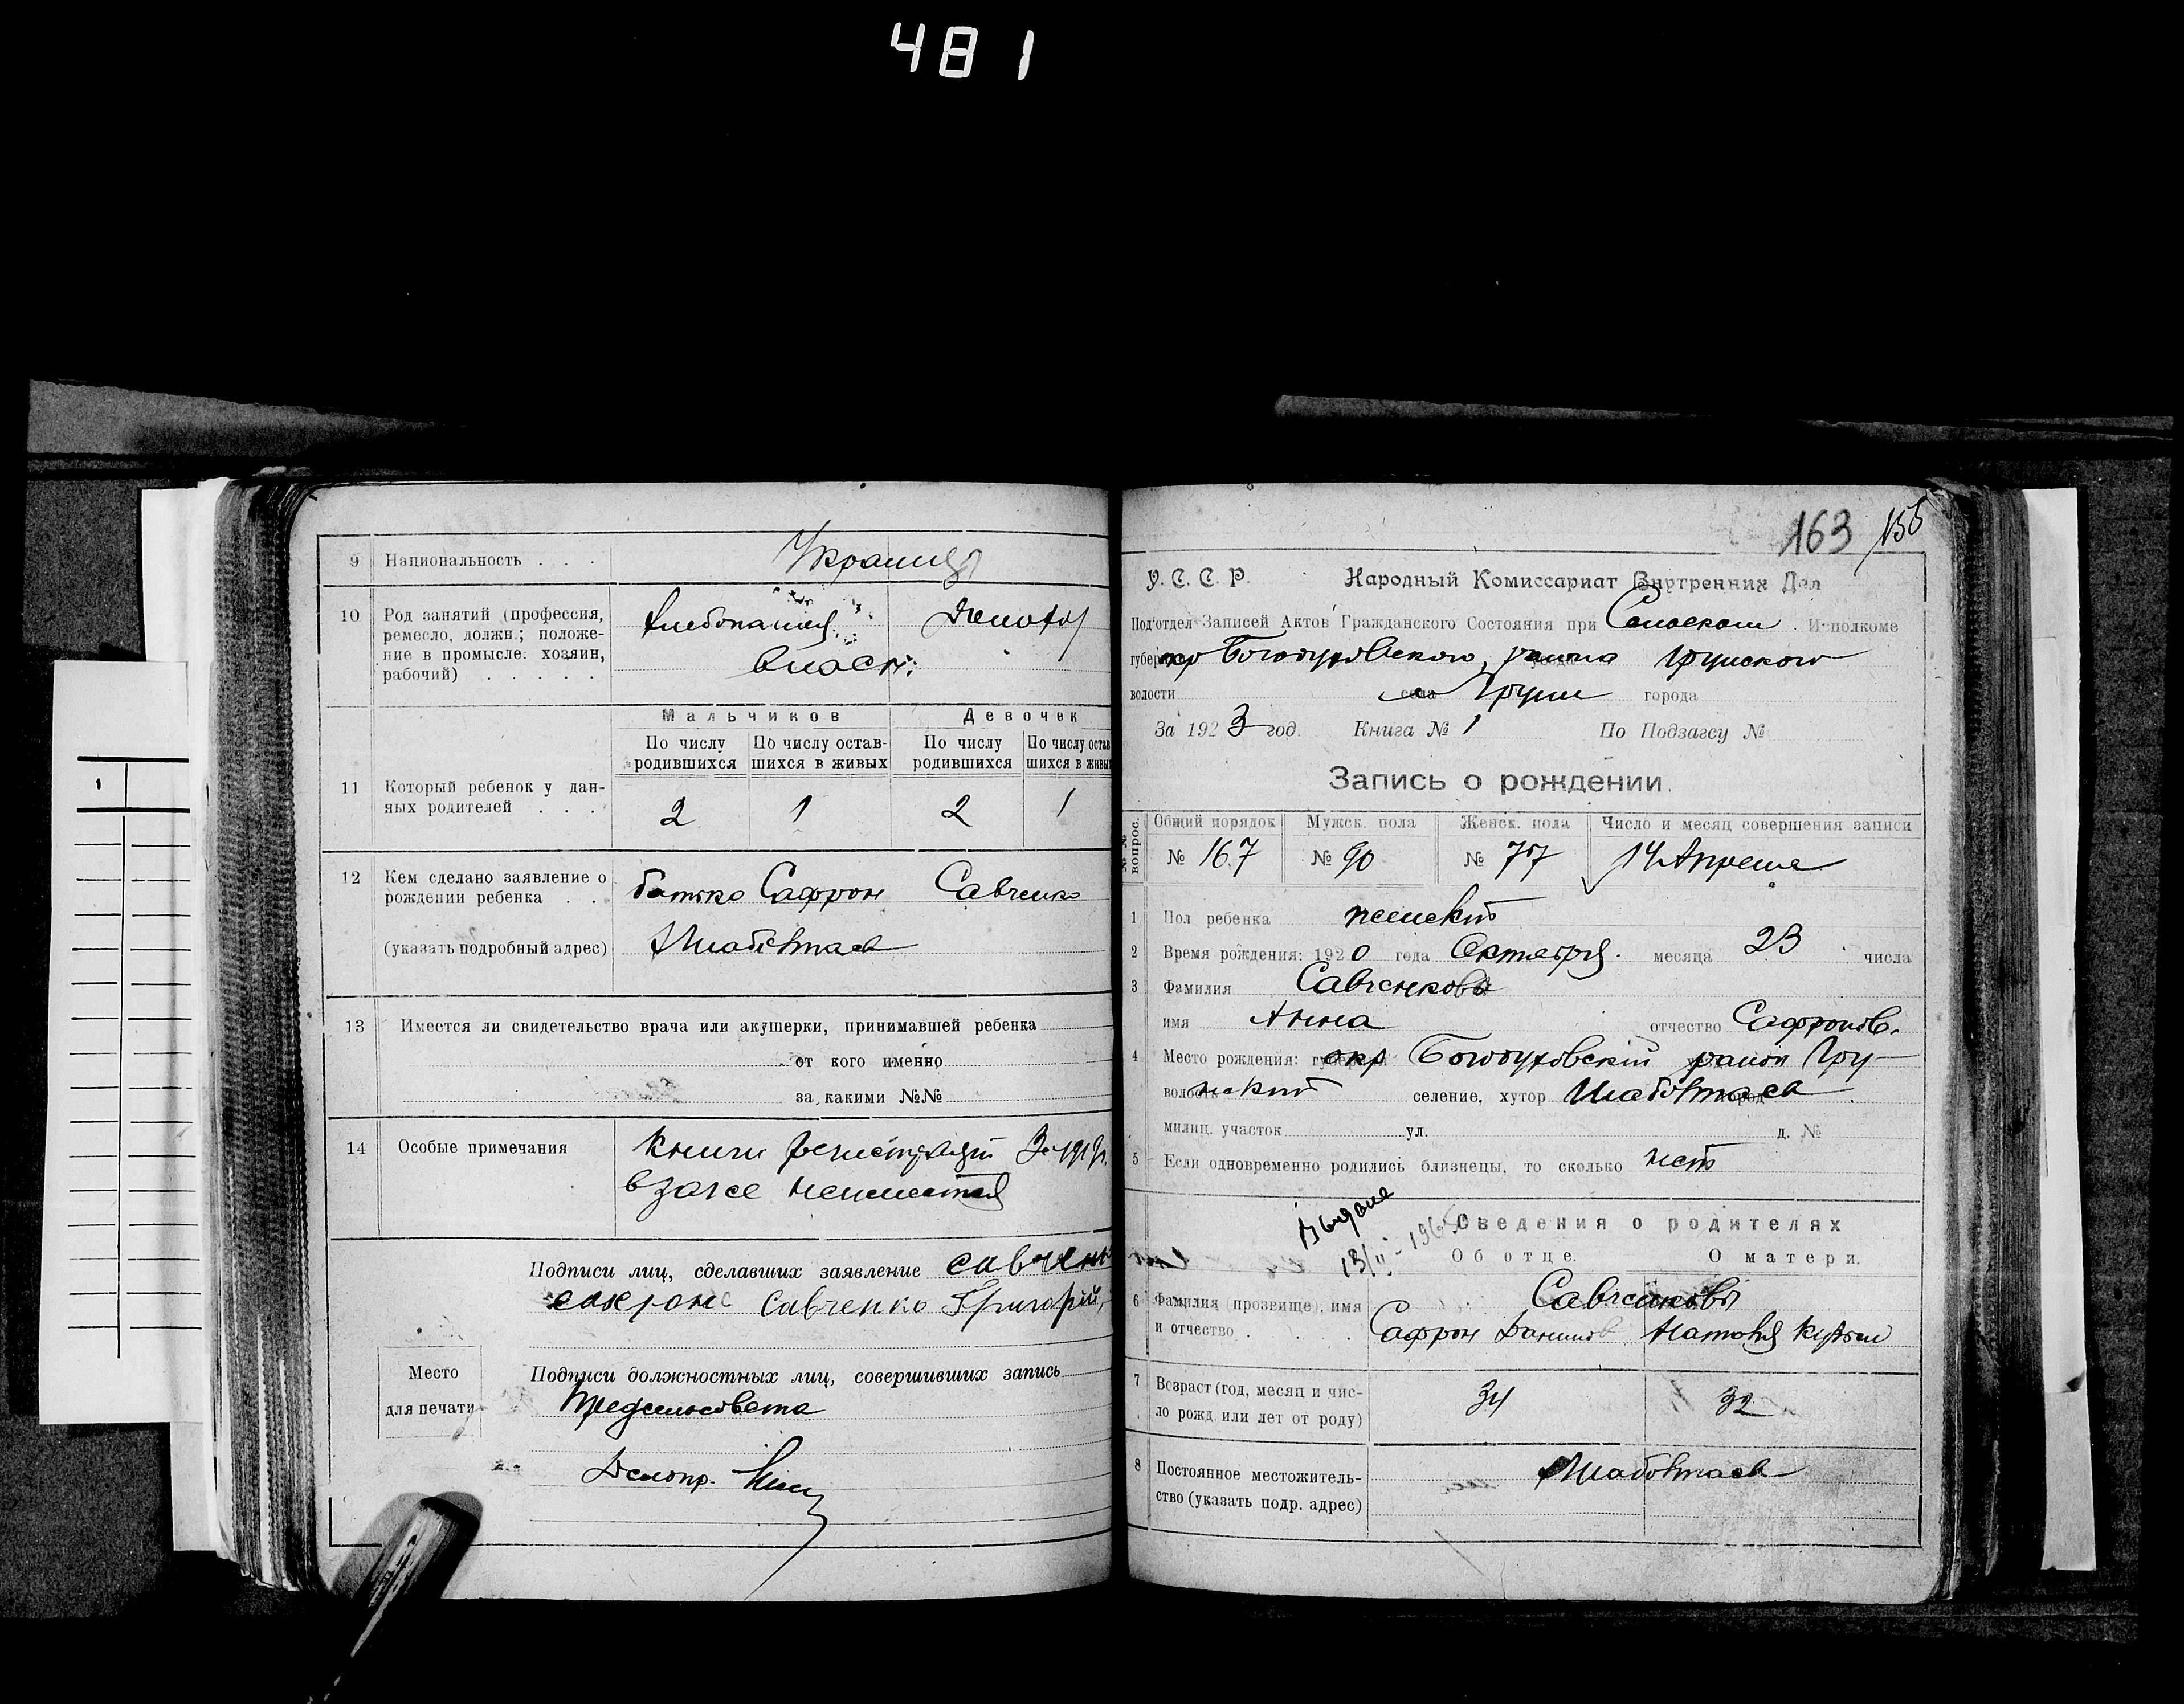 481
9 Национальность . . . Украинцы
10 Род занятий (профессия,
ремесло, должн.; положе-
ние в промысле: хозяин,
рабочий) . . . . .
11 Который ребенок у дан-
ных родителей . . .
Мальчиков Девочек
По числу родившихся По числу остав-шихся в живых По числу родившихся По числу остав шихся в живы
2 1 2 1
12 Кем сделано заявление о
рождении ребенка . . батько Сафрон Савченко
(указать подробный адрес)
13 Имеется ли свидетельство врача или акушерки, принимавшей ребенка
от кого именно
за какими №№
14 Особые примечания Книги
в загсе
Подписи лиц, сделавших заявление Савчен
Савченко Григорий
Подписи должностных лиц, совершивших запись
Место
для печати
Предсельсовета
Делопр.
163 155
У. С. С. Р. Народный Комиссариат Внутренних Дел
Под'отдел Записей Актов Гражданского Состояния при Сельском Исполкоме
губер окр Богодуховского, района Грунского
волости села Груни города
За 1923 год. Книга № 1 По Подзагсу №
Запись о рождении.
№№ вопрос. Общий порядок Мужск. пола Женск. пола Число и месяц совершения записи
№ 167 № 90 № 77 14 Апреля
1 Пол ребенка женский
2 Время рождения: 1920 года Октября месяца 23 числа
3 Фамилия Савченкова
имя Анна отчество Сафронов.
4 Место рождения: окр Богодуховский район Гру-
волость нский селение, хутор
милиц. участок ул. д. №
5 Если одновременно родились близнецы, то сколько нет
Выдано
Сведения о родителях
Об отце. О матери.
6 Фамилия (прозвище), имя
и отчество . . .
Савченковы
Сафрон Данилов
7 Возраст (год, месяц и чис-
ло рожд. или лет от роду)
34 32
8 Постоянное местожитель-
ство (указать подр. адрес)